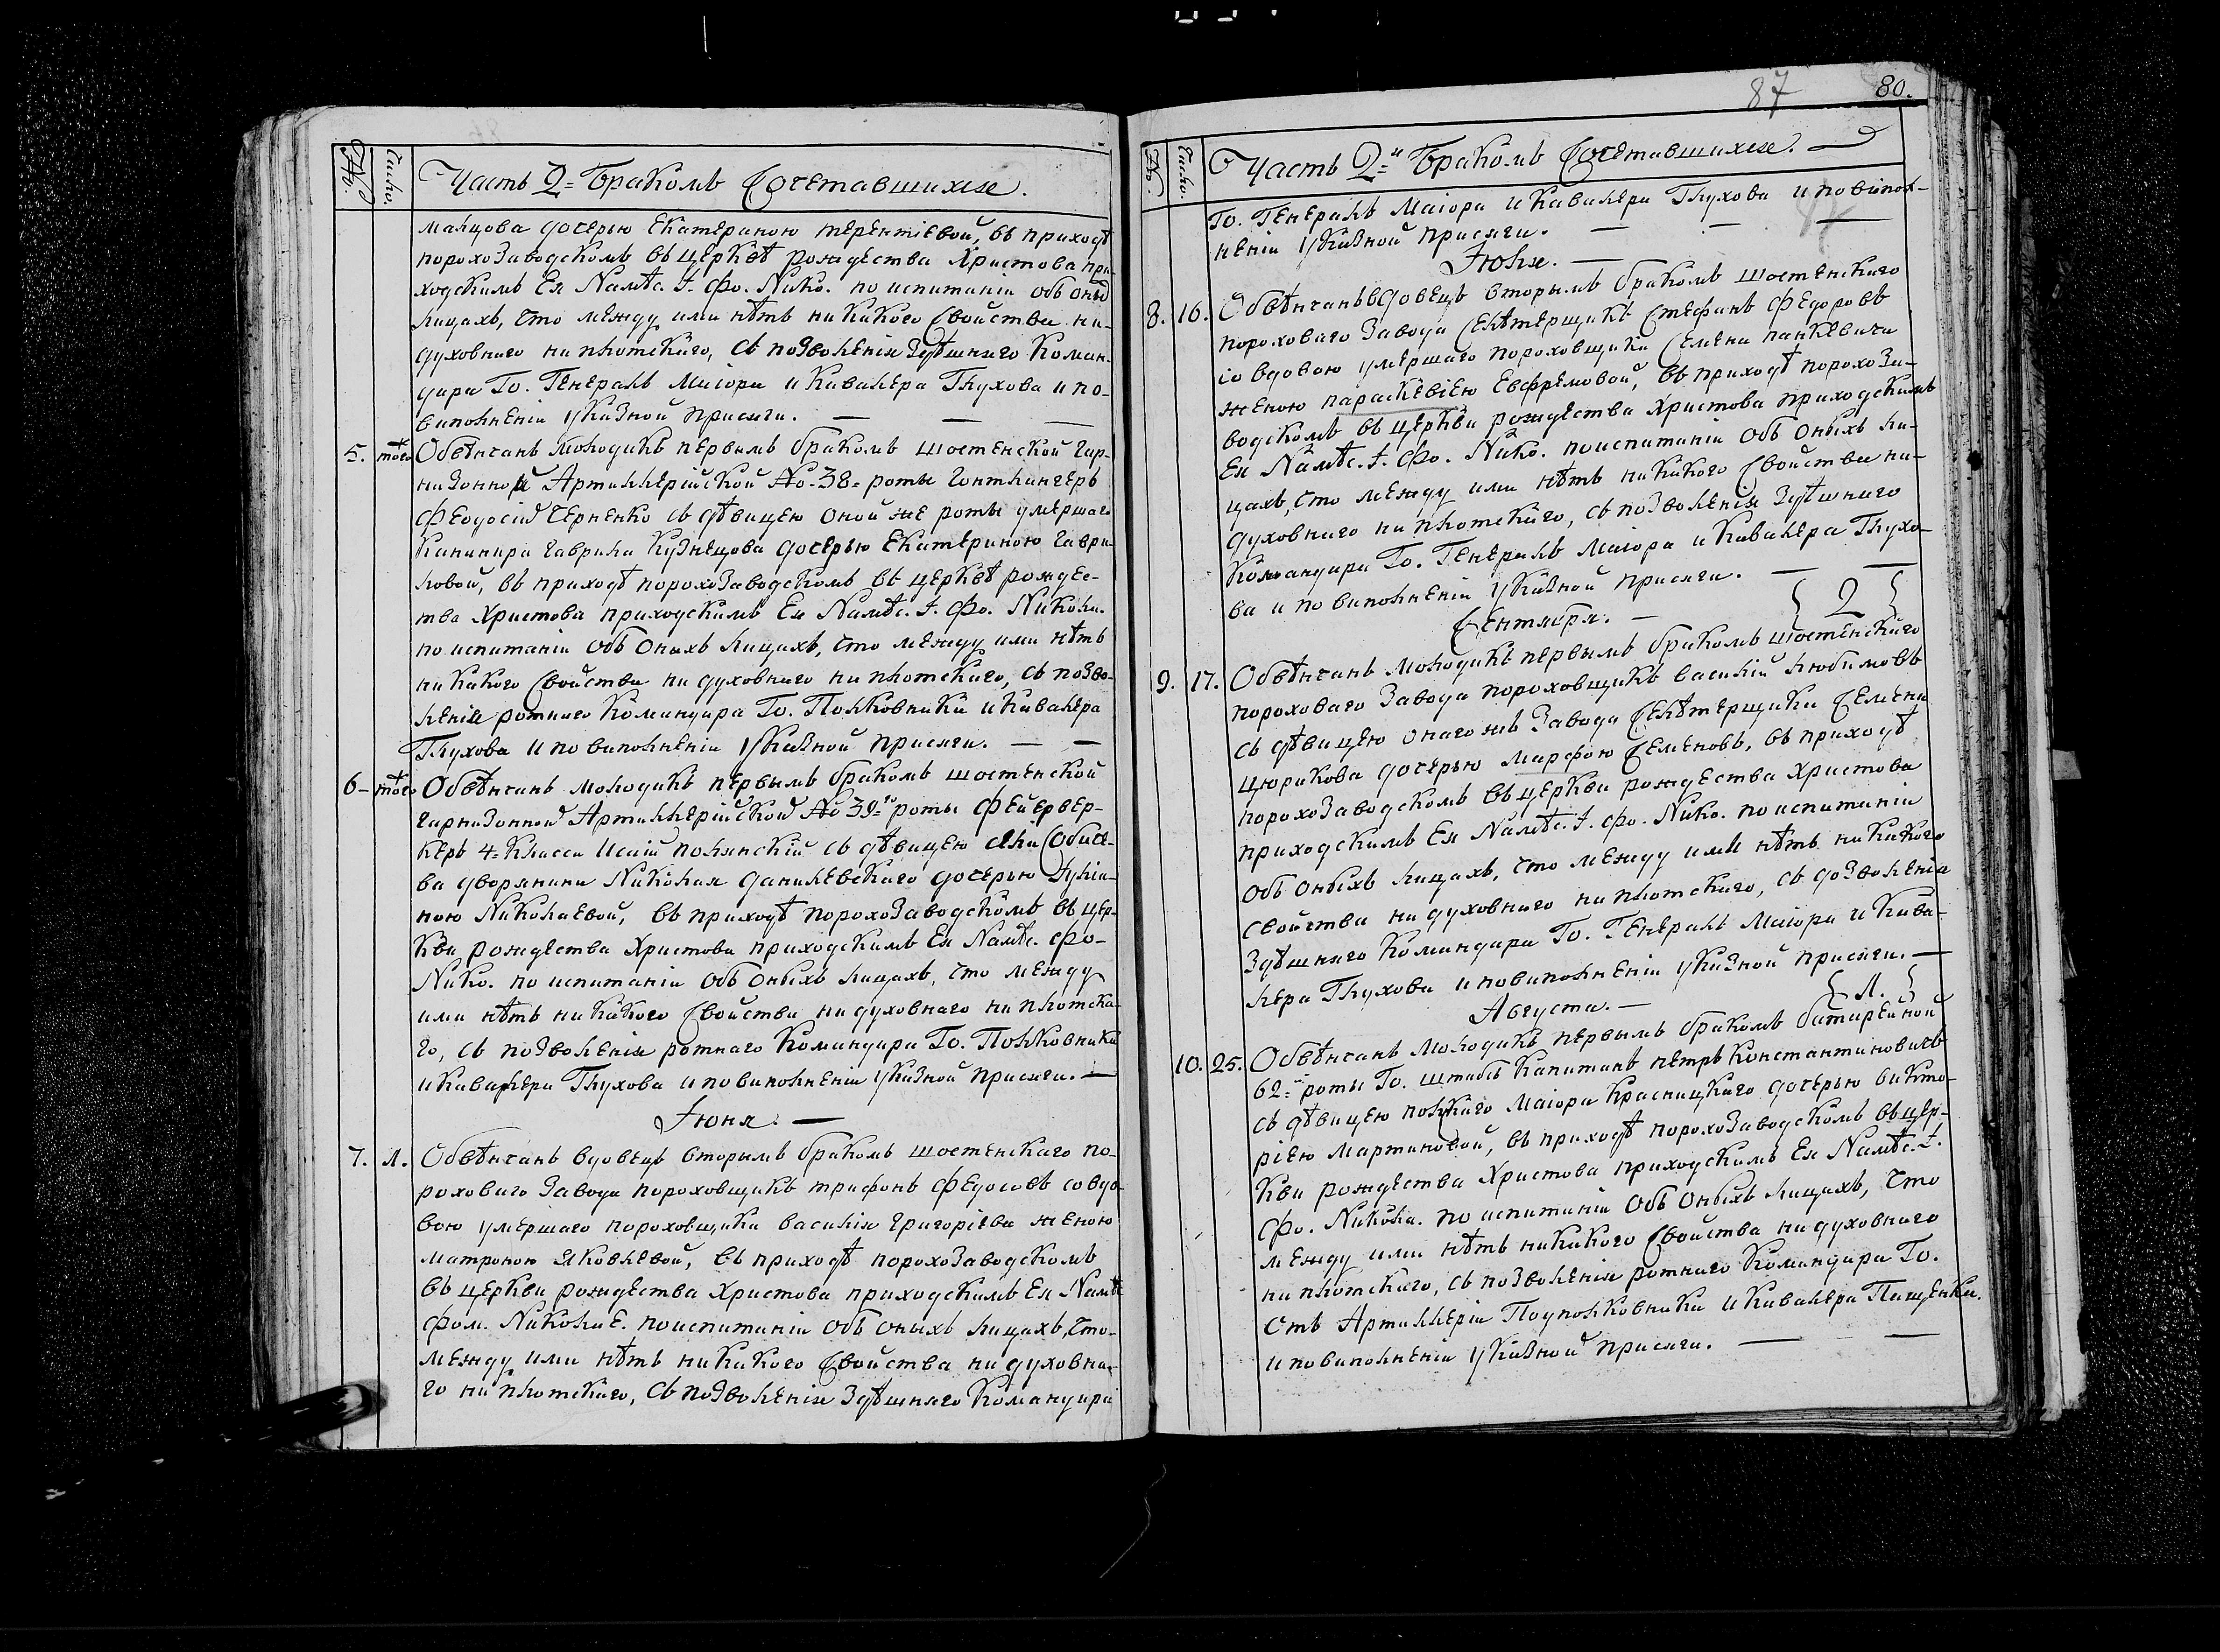 №.
Число.
Часть 2= Бракомъ Сочетавшихся.
малцова дочерью Екатериною терентіевой, въ приходѣ
порохозаводскомъ въ церквѣ рождества Христова при-
ходскимъ Ея Намѣс. І. Фо. Нико. по испитаніи объ оныхъ
лицахъ, что между ими нѣтъ никакого Свойства ни-
духовнаго ни плотскаго, съ позволенія здѣшняго Коман-
дира Го. Генералъ Маіора и Кавалера Глухова и по-
виполненіи указной присяги. — — —
5. того Обвѣнчанъ молодикъ первымъ бракомъ шостенской гар-
низонной Артиллерійской No-38= роты гонтлангеръ
Феодосій Черненко съ дѣвицею оной же роты умершаго
Канипира гаврила Кузнецова дочерью Екатериною гаври-
ловой, въ приходѣ порохозаводскомъ въ церквѣ рождес-
тва Христова приходскимъ Ея Намѣс. І. Фо. Никола.
по испитаніи объ оныхъ лицахъ, что между ими нѣтъ
никакого Свойства ни духовнаго ни плотскаго, съ позво-
ленія ротнаго Командира Го. Полковника и Кавалера
Глухова и по виполненіи указной присяги. — —
6- того Обвѣнчанъ молодикъ первымъ бракомъ шостенской
гарнизонной Артиллерійской No 39= роты Фейервер-
керъ 4= Класса Исаій полянскій съ дѣвицею села Собиче-
ва дворянина Николая данилевскаго дочерью Іулiа-
ною Николаевой, въ приходѣ порохозаводскомъ въ цер-
кви рождества Христова приходскимъ Ея Намѣс. Фо-
Нико. по испитаніи объ оныхъ лицахъ, что между
ими нѣтъ никакого Свойства ни духовнаго ни плотска-
го, съ позволенія ротнаго Командира Го. Полковника
и Кавалера Глухова и по виполненіи указной присяги. —
Іюня. —
7. Л. Обвѣнчанъ вдовецъ вторымъ бракомъ шостенскаго по-
роховаго завода пороховщикъ трифонъ Федосовъ со вдо-
вою умершаго пороховщика василія григоріева женою
матроною Яковлевой, въ приходѣ порохозаводскомъ
въ церкви рождества Христова приходскимъ Ея Намѣ
фом. Николае. по испитаніи объ оныхъ лицахъ, что-
между ими нѣтъ никакого Свойства ни духовна-
го ни плотскаго, съ позволенія здѣшняго Командира
87
80.
№.
Число.
Часть 2=я Бракомъ Сочетавшихся. —
Го. Генералъ Маіора и Кавалера Глухова и по випол-
неніи указной присяги. — — —
Іюля. —
8. 16. Обвѣнчанъ вдовецъ вторымъ бракомъ шостенскаго
пороховаго завода Селѣтерщикъ Стефанъ Федоровъ
со вдовою умершаго пороховщика Семена панкевича
женою параскевіею Евфремовой, въ приходѣ порохоза-
водскомъ въ церкви рождества Христова приходскимъ
Ея Намѣс. І. Фо. Нико. по испитаніи объ оныхъ ли-
цахъ, что между ими нѣтъ никакого Свойства ни-
духовнаго ни плотскаго, съ позволенія здѣшняго
Командира Го. Генералъ Маіора и Кавалера Глухо-
ва и по виполненіи указной присяги. — —
Сентября. — { 2 }
9. 17. Обвѣнчанъ молодикъ первымъ бракомъ шостенскаго
пороховаго завода пороховщикъ василій любимовъ
съ дѣвицею онаго жъ завода Селѣтерщика Семена
Цюрикова дочерью марфою Семеновъ, въ приходѣ
порохозаводскомъ въ церкви рождества Христова
приходскимъ Ея Намѣс. І. Фо. Нико. по испитаніи
объ оныхъ лицахъ, что между ими нѣтъ никакого
Свойства ни духовнаго ни плотскаго, съ дозволенія
здѣшняго Командира Го. Генералъ Маіора и Кава-
лера Глухова и по виполненіи указной присяги. —
Августа. — { Л. }
10. 25. Обвѣнчанъ молодикъ первымъ бракомъ батарейной
62= роты Го. Штабсъ Капитанъ петръ Константиновичъ
съ дѣвицею полскаго Маіора Красницкаго дочерью викто-
ріею Мартиновой, въ приходѣ порохозаводскомъ въ цер-
кви рождества Христова приходскимъ Ея Намѣс. І.
Фо. Никола. по испитаніи объ оныхъ лицахъ, что
между ими нѣтъ никакого Свойства ни духовнаго
ни плотскаго, съ позволенія ротнаго Командира Го.
Отъ Артиллеріи Подполковника и Кавалера Пащенка.
и по виполненіи указной присяги. — —